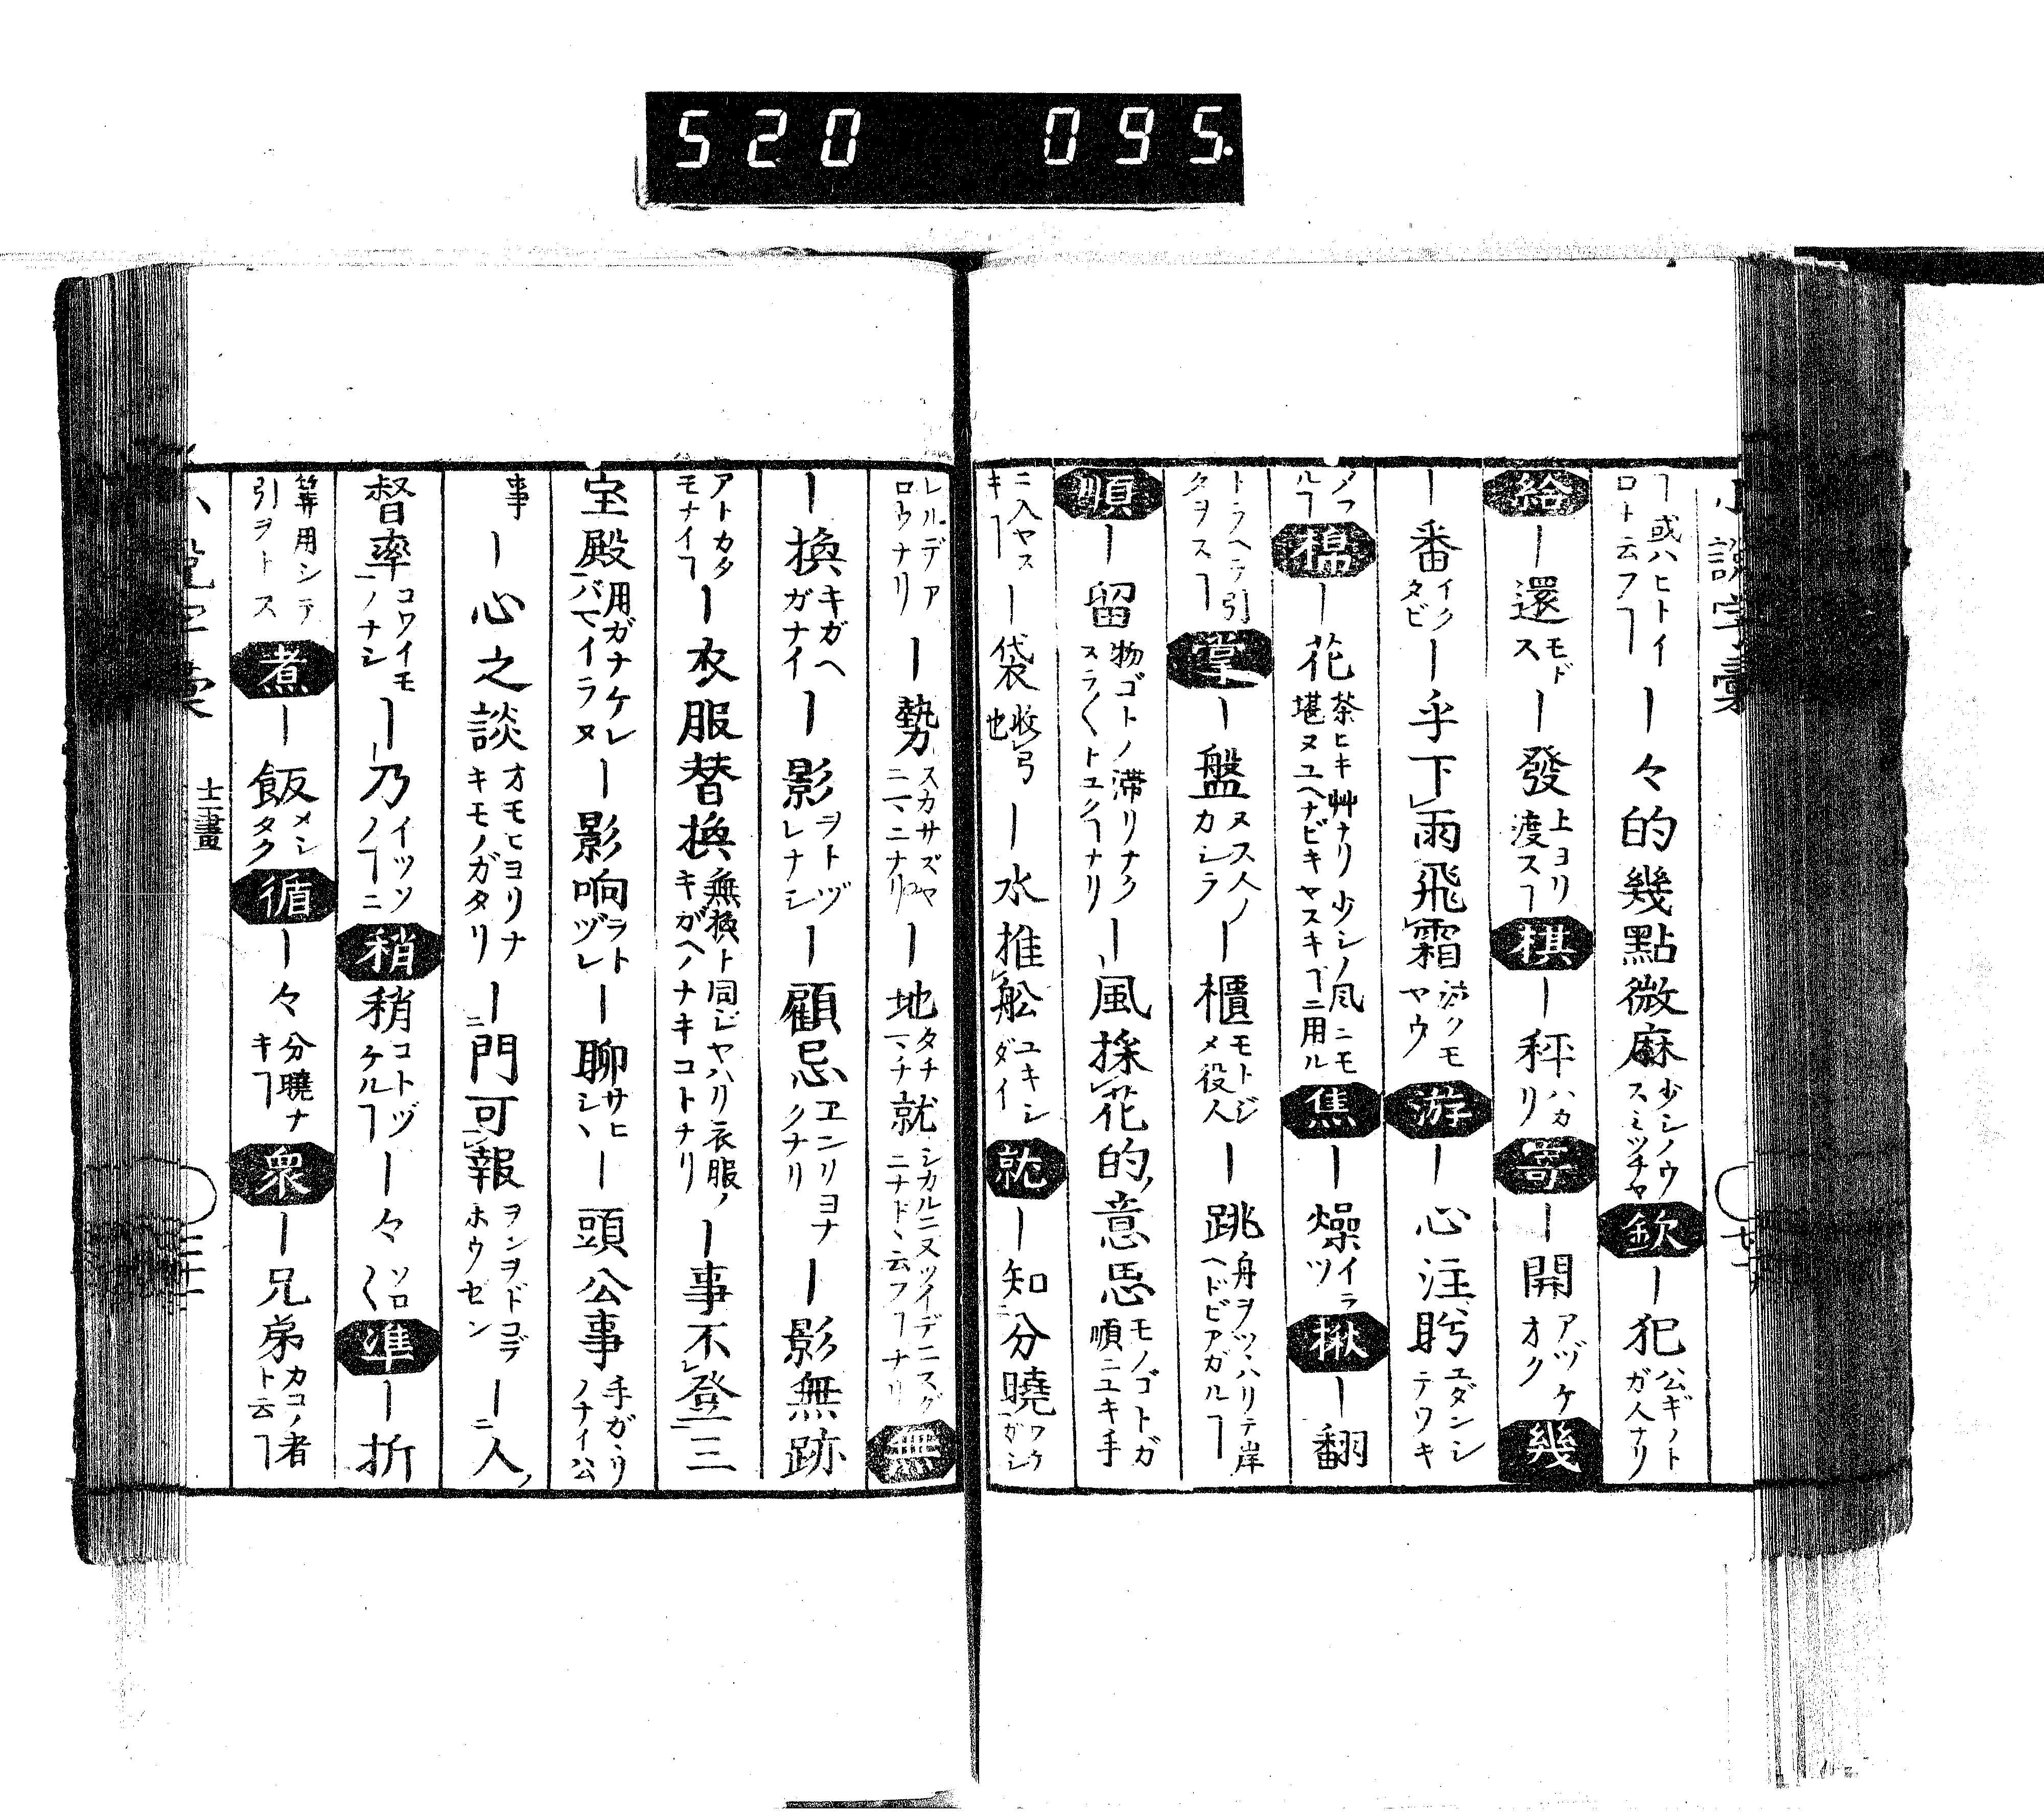 520 095.
小說字彙
ヿ或ハヒトイロト云フヿ ー々的幾點微麻少シノウスミツチヤ 欽ー犯公ギノトガ人ナリ
給ー還モドス ー發上ヨリ渡スヿ 棋ー秤ハカリ 寄ー開アヅケオク 幾
ー番イクタビ ー乎下雨飛霜 ヤウ 游ー心注眝ユダンシテワキ
ルヿ 榻ー花茶ヒキ艸ナリ少シノ風ニモ堪ヌユヘナビキヤスキヿニ用ル 焦ー燥イラツ 揪ー翻
トラヘテ引タヲスヿ 掌ー盤ヌス人ノカシラ ー櫃モトジメ役人 ー跳舟ヲツヽハリテ岸ヘトビアガルヿ
順ー留物ゴトノ滞リナクスラ〱トユクヿナリ ー風採花的意思モノゴトガ順ニユキ手
ニ入ヤスキヿ ー袋收弓也 ー水推舩ユキシダイ 就ー知分曉ワケガシ
レルデアロウナリ ー勢スカサズヤニハニナリ ー地タチマチ 就シカルニヌツイデニスグニナドヽ云フヿナリ 無
ー換キガヘガナイ ー影ヲトヅレナシ ー顧忌ヱンリヨナクナリ ー影無跡
アトカタモナイヿ ー衣服替換無換ト同ジヤハリ衣服ノキガヘノナキコトナリ ー事不登三
宝殿用ガナケレバマイラヌ ー影响ヲトヅレ ー聊サヒシヽ ー頭公事手ガヽリノナイ公
事 ー心之談オモヒヨリナキモノガタリ ー門可報ヲンヲドコデホウゼン ー人
督率コワイモノナシ ー乃イツソノヿニ 稍稍コトヅケルヿ ー々ソロ〱 準ー折
筭用シテ引ヲトス 煮ー飯メシタク 循ー々分曉ナキヿ 衆ー兄弟カコノ者ト云ヿ
小說字彙 士畫